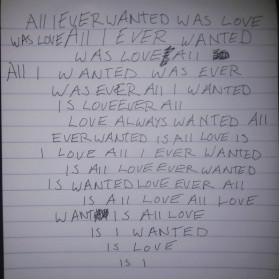 All I EVER WANTED WAS LOVE
WAS LOVE All I EVER WANTED
WAS LOVE All
All I WANTED WAS EVER
WAS EVER All I WANTED
IS LOVE EVER All
LOVE ALWAYS WANTED All
EVER WANTED IS All LOVE IS
I LOVE All I EVER WANTED
IS All LOVE EVER WANTED
IS WANTED LOVE EVER All
IS All LOVE All LOVE
WANT IS All LOVE
IS I WANTED
IS LOVE
IS I